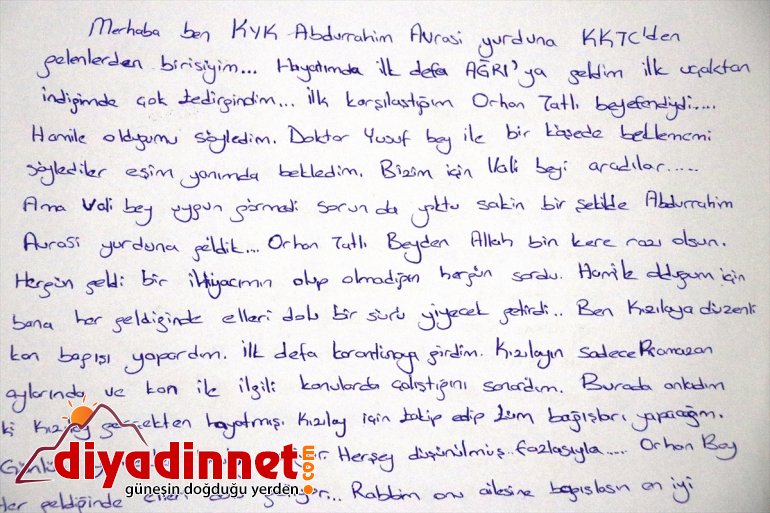 Merhaba ben KYK Abdurrahim Avrasi yurduna KKTC'den
gelenlerden birisiyim... Hayatımda ilk defa AĞRI'ya geldim ilk uçaktan
indiğimde çok tedirgindim... İlk karşılaştığım Orhan Tatlı beyefendiydi....
Hamile olduğumu söyledim. Doktor Yusuf bey ile bir köşede beklememi
söylediler eşim yanımda bekledim. Bizim için Vali beyi aradılar.....
Ama Vali bey uygun görmedi sorun da yoktu sakin bir şekilde Abdurrahim
Avrasi yurduna geldik... Orhan Tatlı Beyden Allah bin kere razı olsun.
Hergün geldi bir ihtiyacımın olup olmadığını hergün sordu. Hamile olduğum için
bana her geldiğinde elleri dolu bir sürü yiyecek getirdi.. Ben Kızılaya düzenli
kan bağışı yapardım. İlk defa karantinaya girdim. Kızılayın sadece Ramazan
aylarında ve kan ile ilgili konularda çalıştığını sanardım. Burada anladım
ki Kızılay gerçekten hayatmış. Kızılay için takip edip tüm bağışları yapacağım.
Herşey düşünülmüş fazlasıyla.... Orhan Bey
Her geldiğinde elleri Rabbim onu ailesine bağışlasın en iyi
diyadinnet.com
güneşin doğduğu yerden